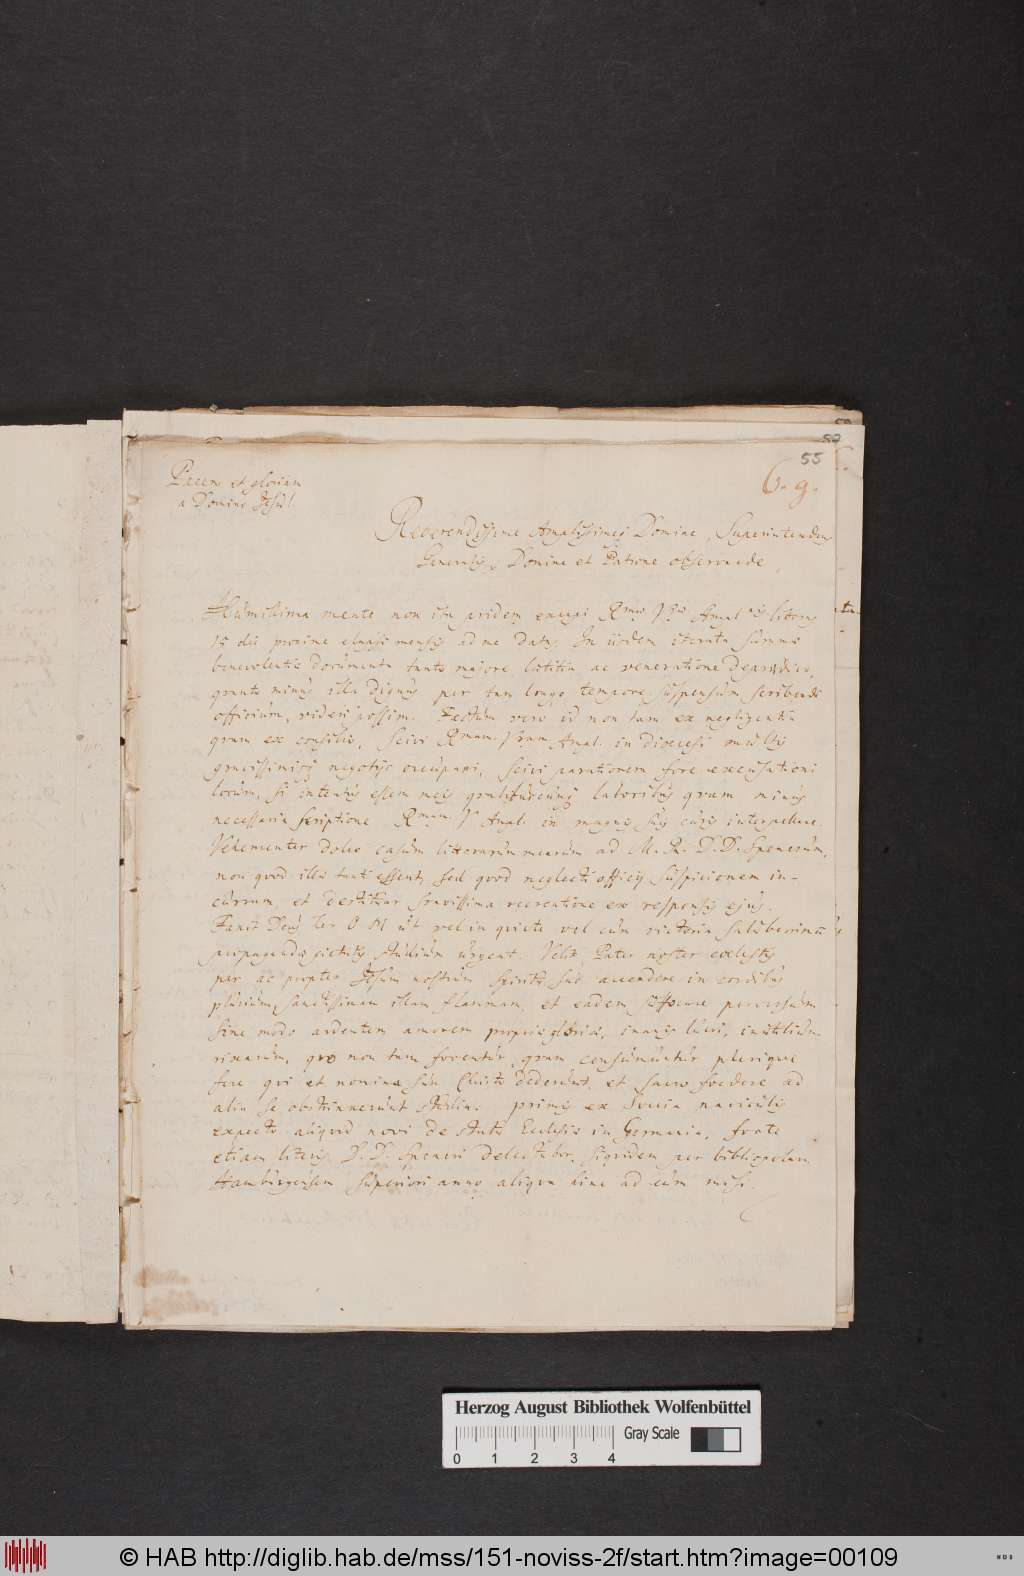 55
6. 9.
Pacem et gloriam
a Domino Jesu!
Reverendissime Amplissimeq Domine, Superintendens
Generalis, Domine et Patrone observande,
Humillima mente non ita pridem excepi Rmæ Væ Ampl. litteras
15 die proxime elapsi mensis ad me datas. In iisdem iterata summæ
benevolentiæ documenta tanto majore lætitia ac veneratione deprædico,
quanto minus illa dignus per tam longo tempore suspensum scribendi
officium, videri possim. Factum vero id non tam ex negligentia
quam ex consilio. Scivi Rmam. Vram Ampl. in dioecesi multis
gravissimisq negotijs occupari, scivi paratiorem fore excusationi
locum, si intentus essem meis qualibuscunq laboribus quam minus
necessaria scriptione Rmam. V Ampl. in magnis suis curis interpellare.
Vehementer doleo casum litterarum mearum ad M. R. D. D. Spenerum,
non quod illæ tanti essent, sed quod neglecti officij suspicionem in-
curram, et destituar suavissima recreatione ex responsis ejus.
Faxit Deus ter O M ut vel in quiete vel cum victoria saluberrimum
propagandæ pietatis studium urgeat. Velit Pater noster coelestis
per ac propter Jesum nostrum Spiritu suo accendere in cordibus
plurium, sanctissimam illam flammam, et eadem suffocare perversum
sine modo ardentem amorem propriæ gloriæ, inanis lucri, inutilium
rixarum, quo non tam foventur quam consumuntur plerique
fere qui et nomina sua Christo dederunt, et sacro foedere ad
alia se obstrinxerunt studia. primis ex Svecia naviculis
expecto aliquid novi de statu Ecclesiæ in Germania, forte
etiam literis D. D. Speneri delectabor, siquidem per bibliopolam
Hamburgensem superiori anno aliqua hinc ad eum misi.
Herzog August Bibliothek Wolfenbüttel
Gray Scale
0 1 2 3 4
© HAB http://diglib.hab.de/mss/151-noviss-2f/start.htm?image=00109